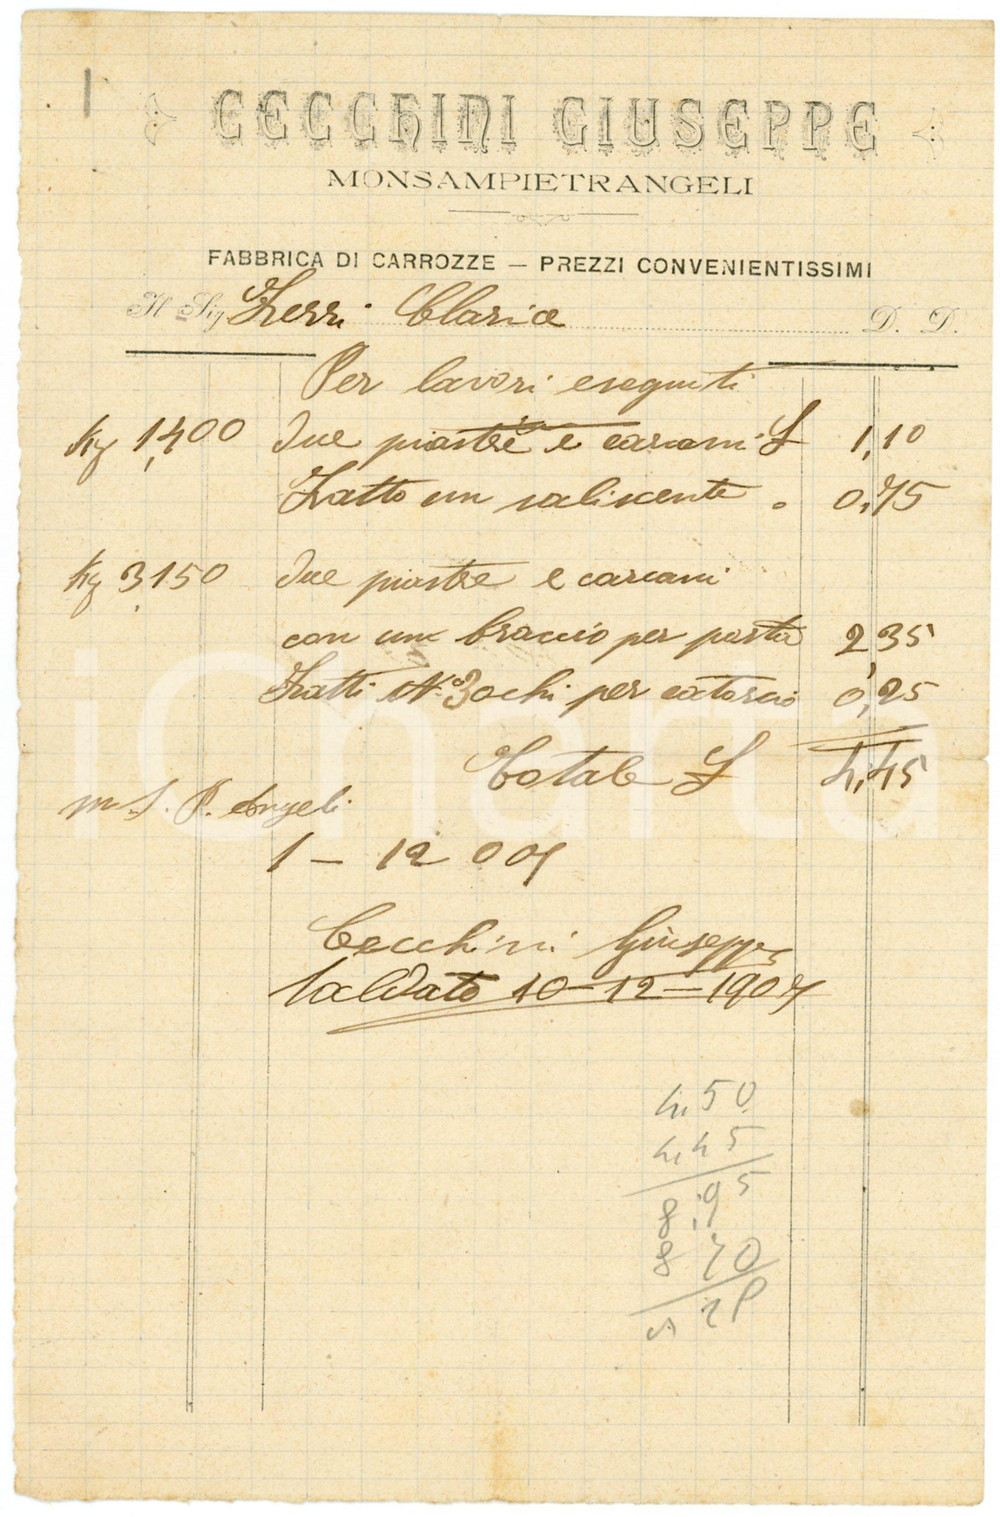 CECCHINI GIUSEPPE
MONSAMPIETRANGELI
FABBRICA DI CARROZZE — PREZZI CONVENIENTISSIMI
Il Sig Zerri Clarice D. D.
Per lavori eseguiti
Kg 1,400 due piastre e carcani £ 1,10
Fatto un saliscente " 0,75
Kg 3,150 due piastre e carcani
con un braccio per porta 2,35
Fatti N.o 3 ochi per catorcio 0,25
Totale £ 4,45
M. S. P. Angeli
1 – 12 907
Cecchini Giuseppe
Saldato 10–12–1907
4,50
4,45
8,95
8 70
25
iCharta